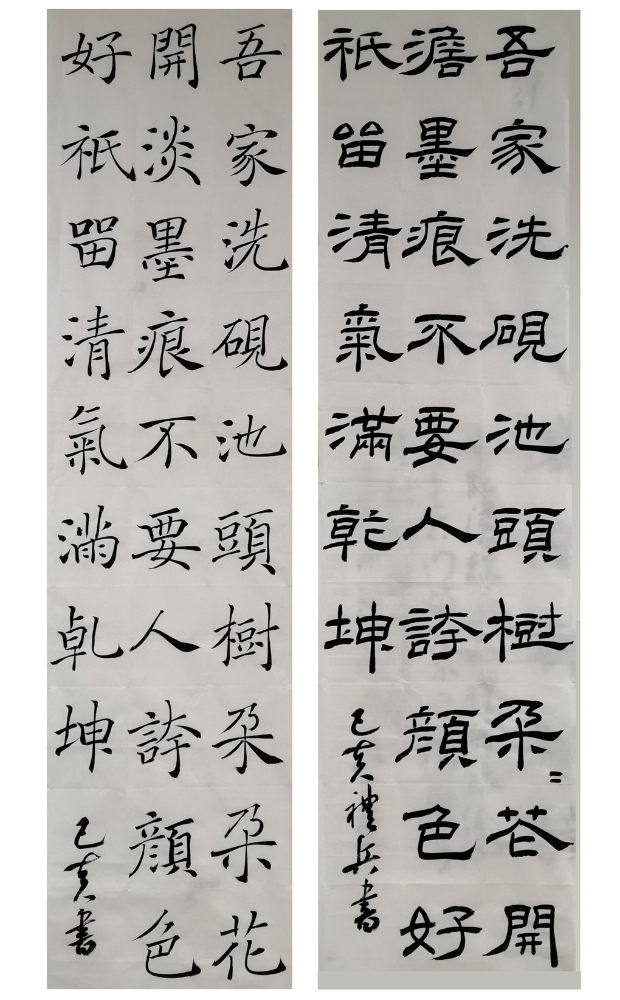 吾家洗硯池頭樹朵〻花開
澹墨痕不要人誇顏色好
祇留清氣滿乾坤 己亥禮兵書
吾家洗硯池頭樹朵朵花
開淡墨痕不要人誇顏色
好祇留清氣滿乾坤 己亥書